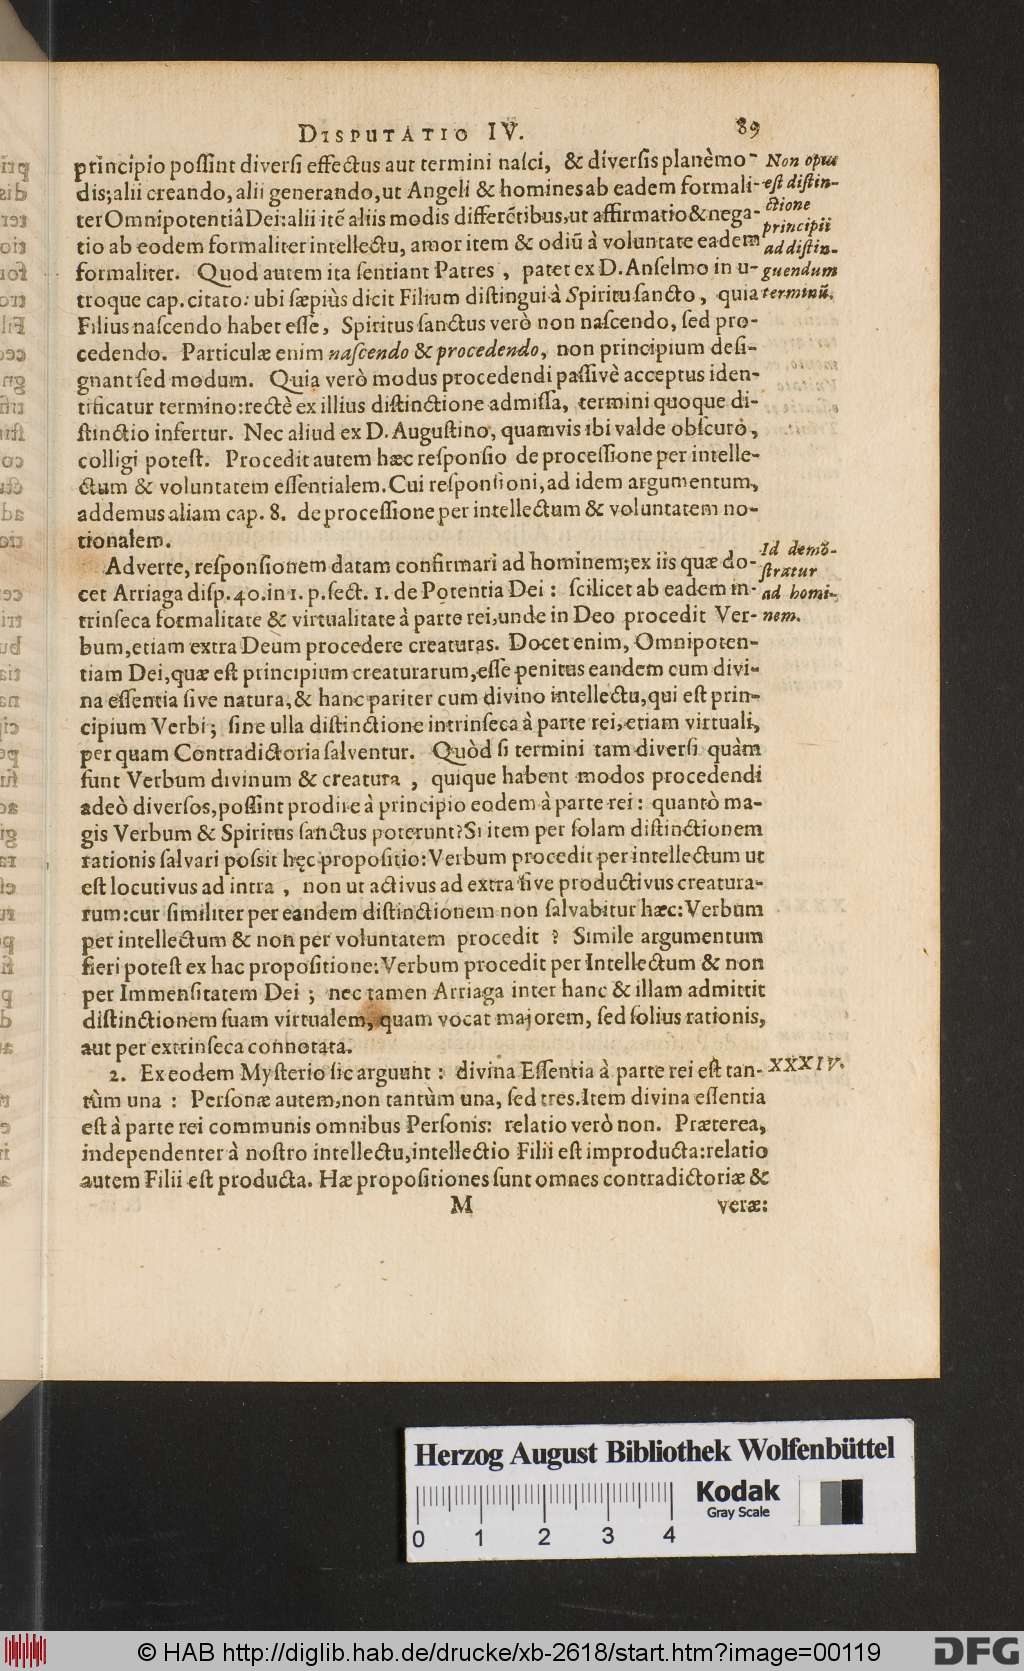 DISPUTATIO IV. 89
principio possint diversi effectus aut termini nasci, & diversis planè mo-
dis; alii creando, alii generando, ut Angeli & homines ab eadem formali-
ter Omnipotentiâ Dei: alii itē aliis modis differētibus, ut affirmatio & nega-
tio ab eodem formaliter intellectu, amor item & odiū à voluntate eadem
formaliter. Quod autem ita sentiant Patres, patet ex D. Anselmo in u-
troque cap. citato: ubi sæpiùs dicit Filium distingui à Spiritu sancto, quia
Filius nascendo habet esse, Spiritus sanctus verò non nascendo, sed pro-
cedendo. Particulæ enim nascendo & procedendo, non principium desi-
gnant sed modum. Quia verò modus procedendi passivè acceptus iden-
tificatur termino: rectè ex illius distinctione admissa, termini quoque di-
stinctio infertur. Nec aliud ex D. Augustino, quamvis ibi valde obscurò,
colligi potest. Procedit autem hæc responsio de processione per intelle-
ctum & voluntatem essentialem. Cui responsioni, ad idem argumentum,
addemus aliam cap. 8. de processione per intellectum & voluntatem no-
tionalem.
Non opus
est distin-
ctione
principii
ad distin-
guendum
terminū.
Adverte, responsionem datam confirmari ad hominem; ex iis quæ do-
cet Arriaga disp. 40. in 1. p. sect. 1. de Potentia Dei: scilicet ab eadem in-
trinseca formalitate & virtualitate à parte rei, unde in Deo procedit Ver-
bum, etiam extra Deum procedere creaturas. Docet enim, Omnipoten-
tiam Dei, quæ est principium creaturarum, esse penitus eandem cum divi-
na essentia sive natura, & hanc pariter cum divino intellectu, qui est prin-
cipium Verbi; sine ulla distinctione intrinseca à parte rei, etiam virtuali,
per quam Contradictoria salventur. Quòd si termini tam diversi quàm
sunt Verbum divinum & creatura, quique habent modos procedendi
adeò diversos, possint prodire à principio eodem à parte rei: quantò ma-
gis Verbum & Spiritus sanctus poterunt? Si item per solam distinctionem
rationis salvari possit hęc propositio: Verbum procedit per intellectum ut
est locutivus ad intra, non ut activus ad extra sive productivus creatura-
rum: cur similiter per eandem distinctionem non salvabitur hæc: Verbum
per intellectum & non per voluntatem procedit? Simile argumentum
fieri potest ex hac propositione: Verbum procedit per Intellectum & non
per Immensitatem Dei; nec tamen Arriaga inter hanc & illam admittit
distinctionem suam virtualem, quam vocat majorem, sed solius rationis,
aut per extrinseca connotata.
Id demō-
stratur
ad homi-
nem.
2. Ex eodem Mysterio sic arguunt: divina Essentia à parte rei est tan-
tùm una: Personæ autem, non tantùm una, sed tres. Item divina essentia
est à parte rei communis omnibus Personis: relatio verò non. Præterea,
independenter à nostro intellectu, intellectio Filii est improducta: relatio
autem Filii est producta. Hæ propositiones sunt omnes contradictoriæ &
XXXIV.
M veræ:
Herzog August Bibliothek Wolfenbüttel
Kodak
Gray Scale
0 1 2 3 4
© HAB http://diglib.hab.de/drucke/xb-2618/start.htm?image=00119
DFG